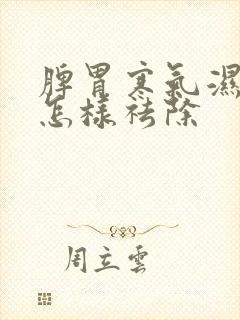 脾胃寒氣濕
怎樣祛除
周立雲